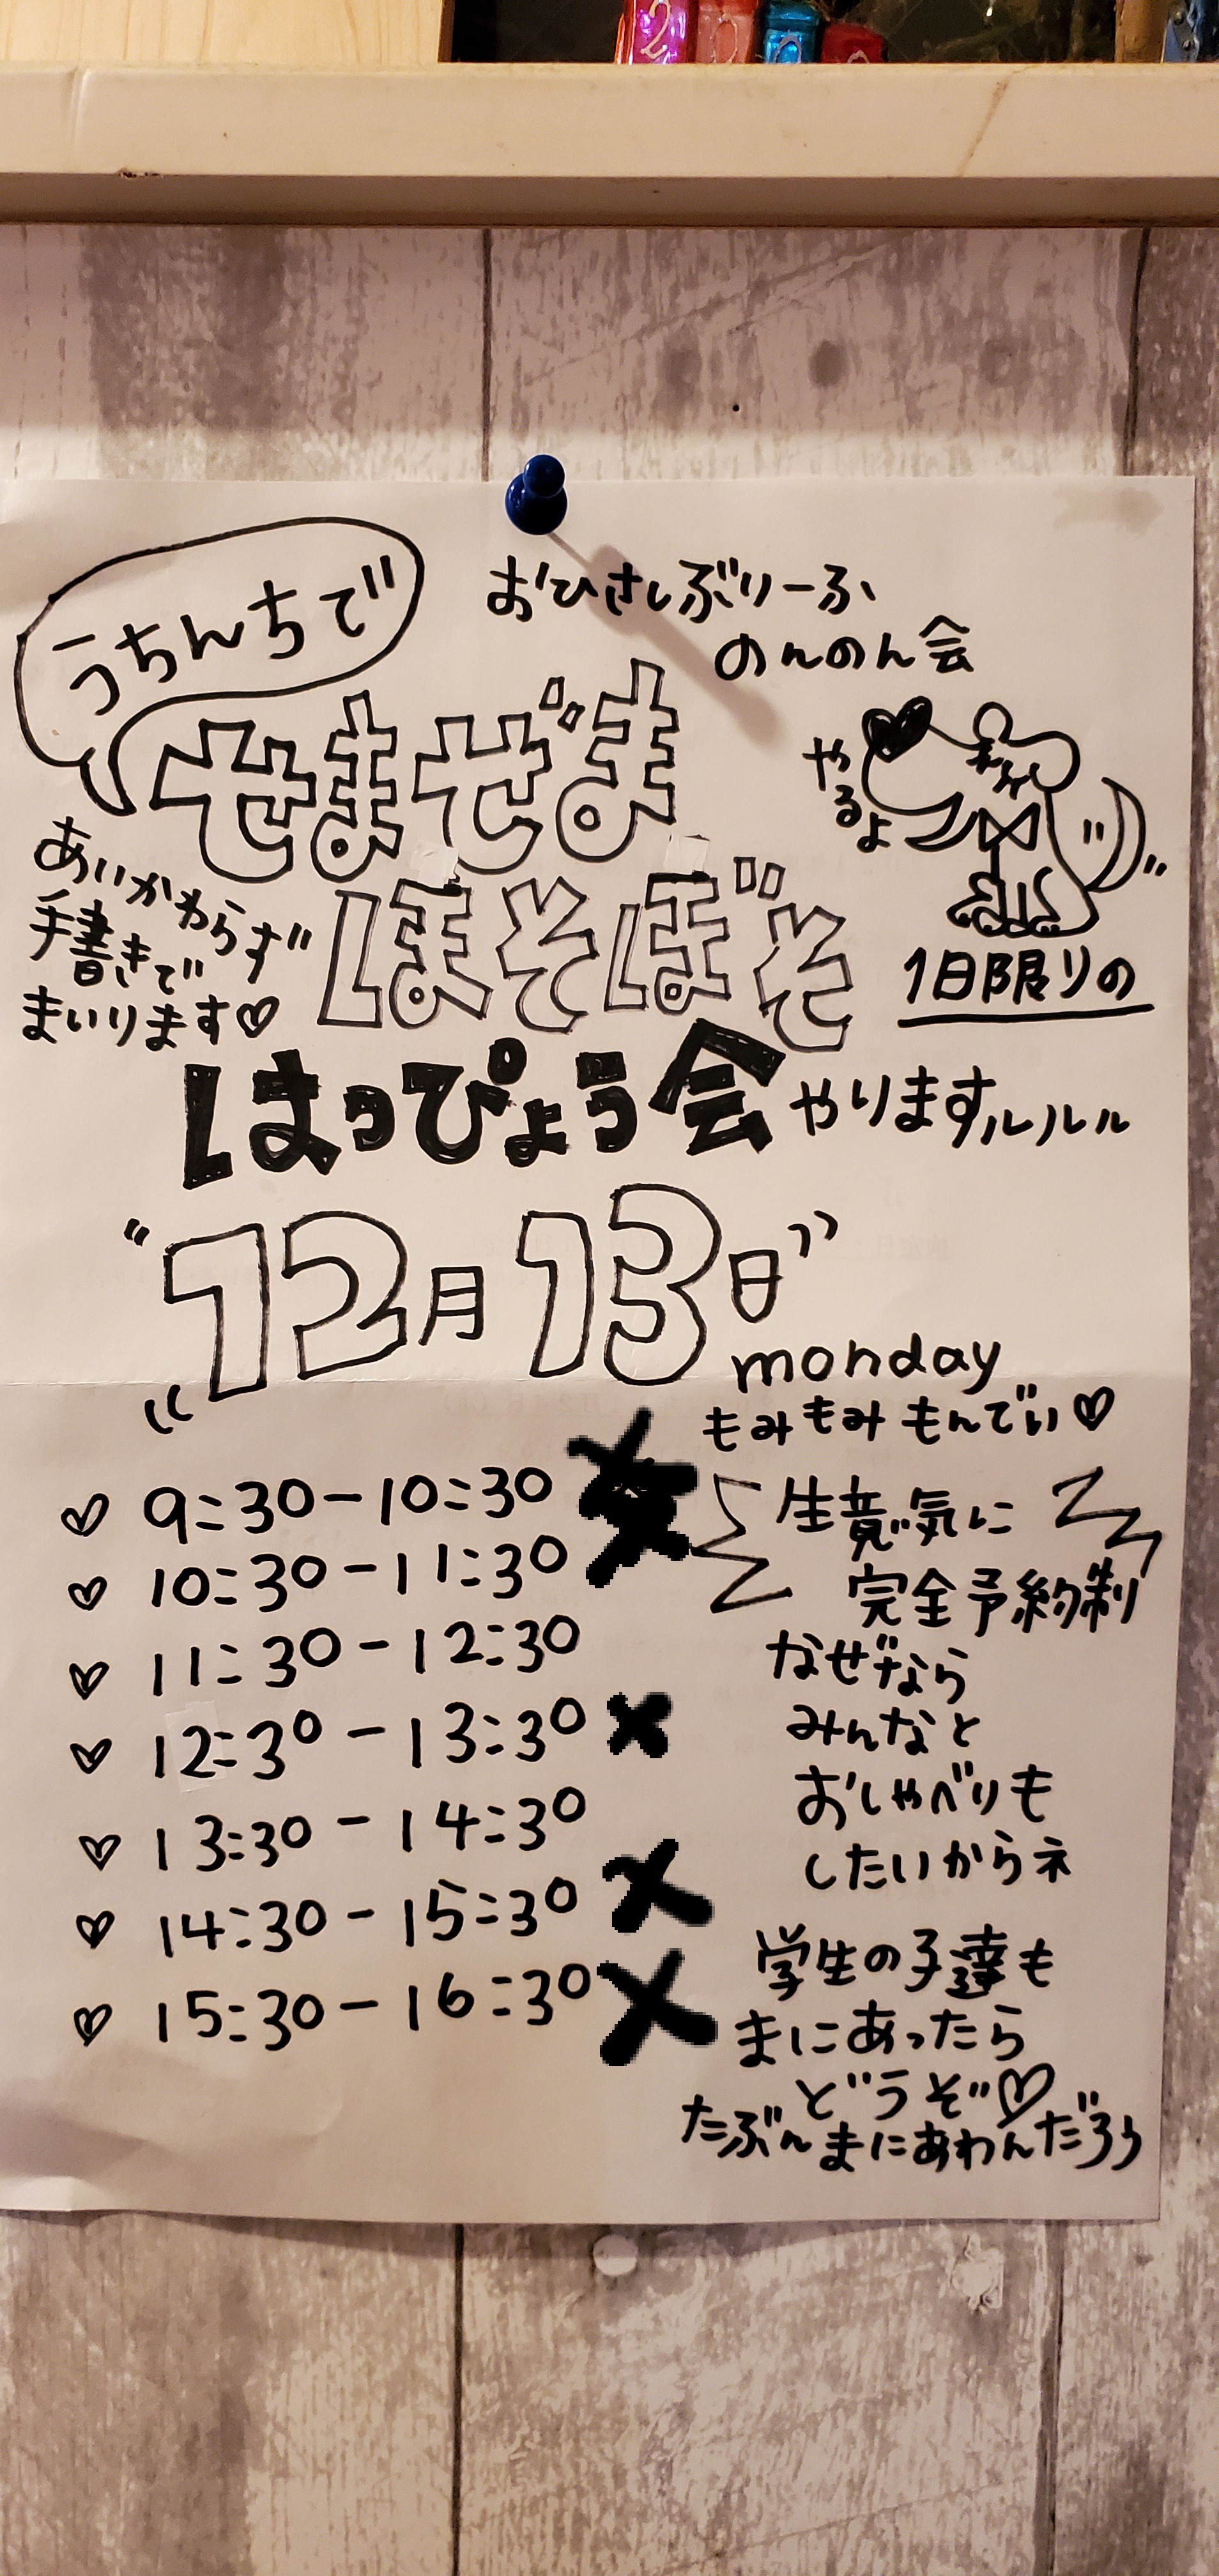 うちんちで
おひさしぶりーふ
のんのん会
せまぜま
やるよ
あいかわらず
手書きで
まいります♡
ほそぼそ
1日限りの
はっぴょう会 やりますルルル
12月13日
monday
もみもみ もんでい♡
♡ 9:30-10:30
♡ 10:30-11:30
♡ 11:30-12:30
♡ 12:30-13:30 ×
♡ 13:30-14:30
♡ 14:30-15:30 ×
♡ 15:30-16:30 ×
生意気に
完全予約制
なぜなら
みんなと
おしゃべりも
したいからネ
学生の子達も
まにあったら
どうぞ♡
たぶんまにあわんだろう